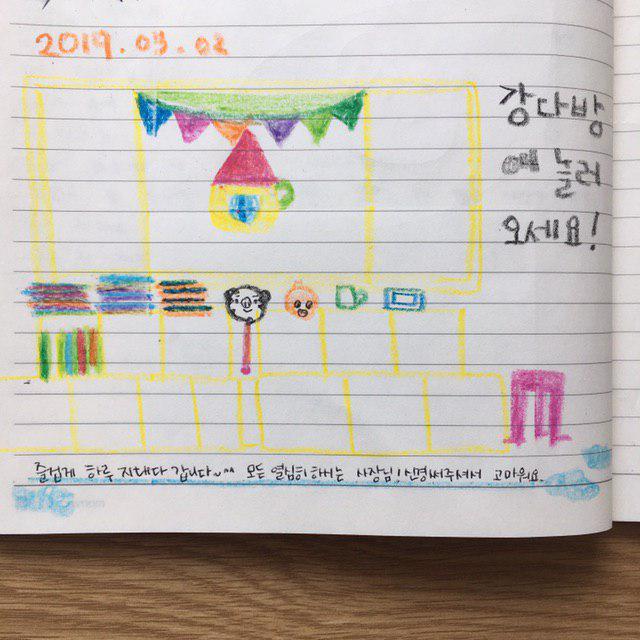 2019.03.02
강다방
에 놀러
오세요!
즐겁게 하루 지내다 갑니다~^^ 모든 열심히 하시는 사장님! 신경써주셔서 고마워요.